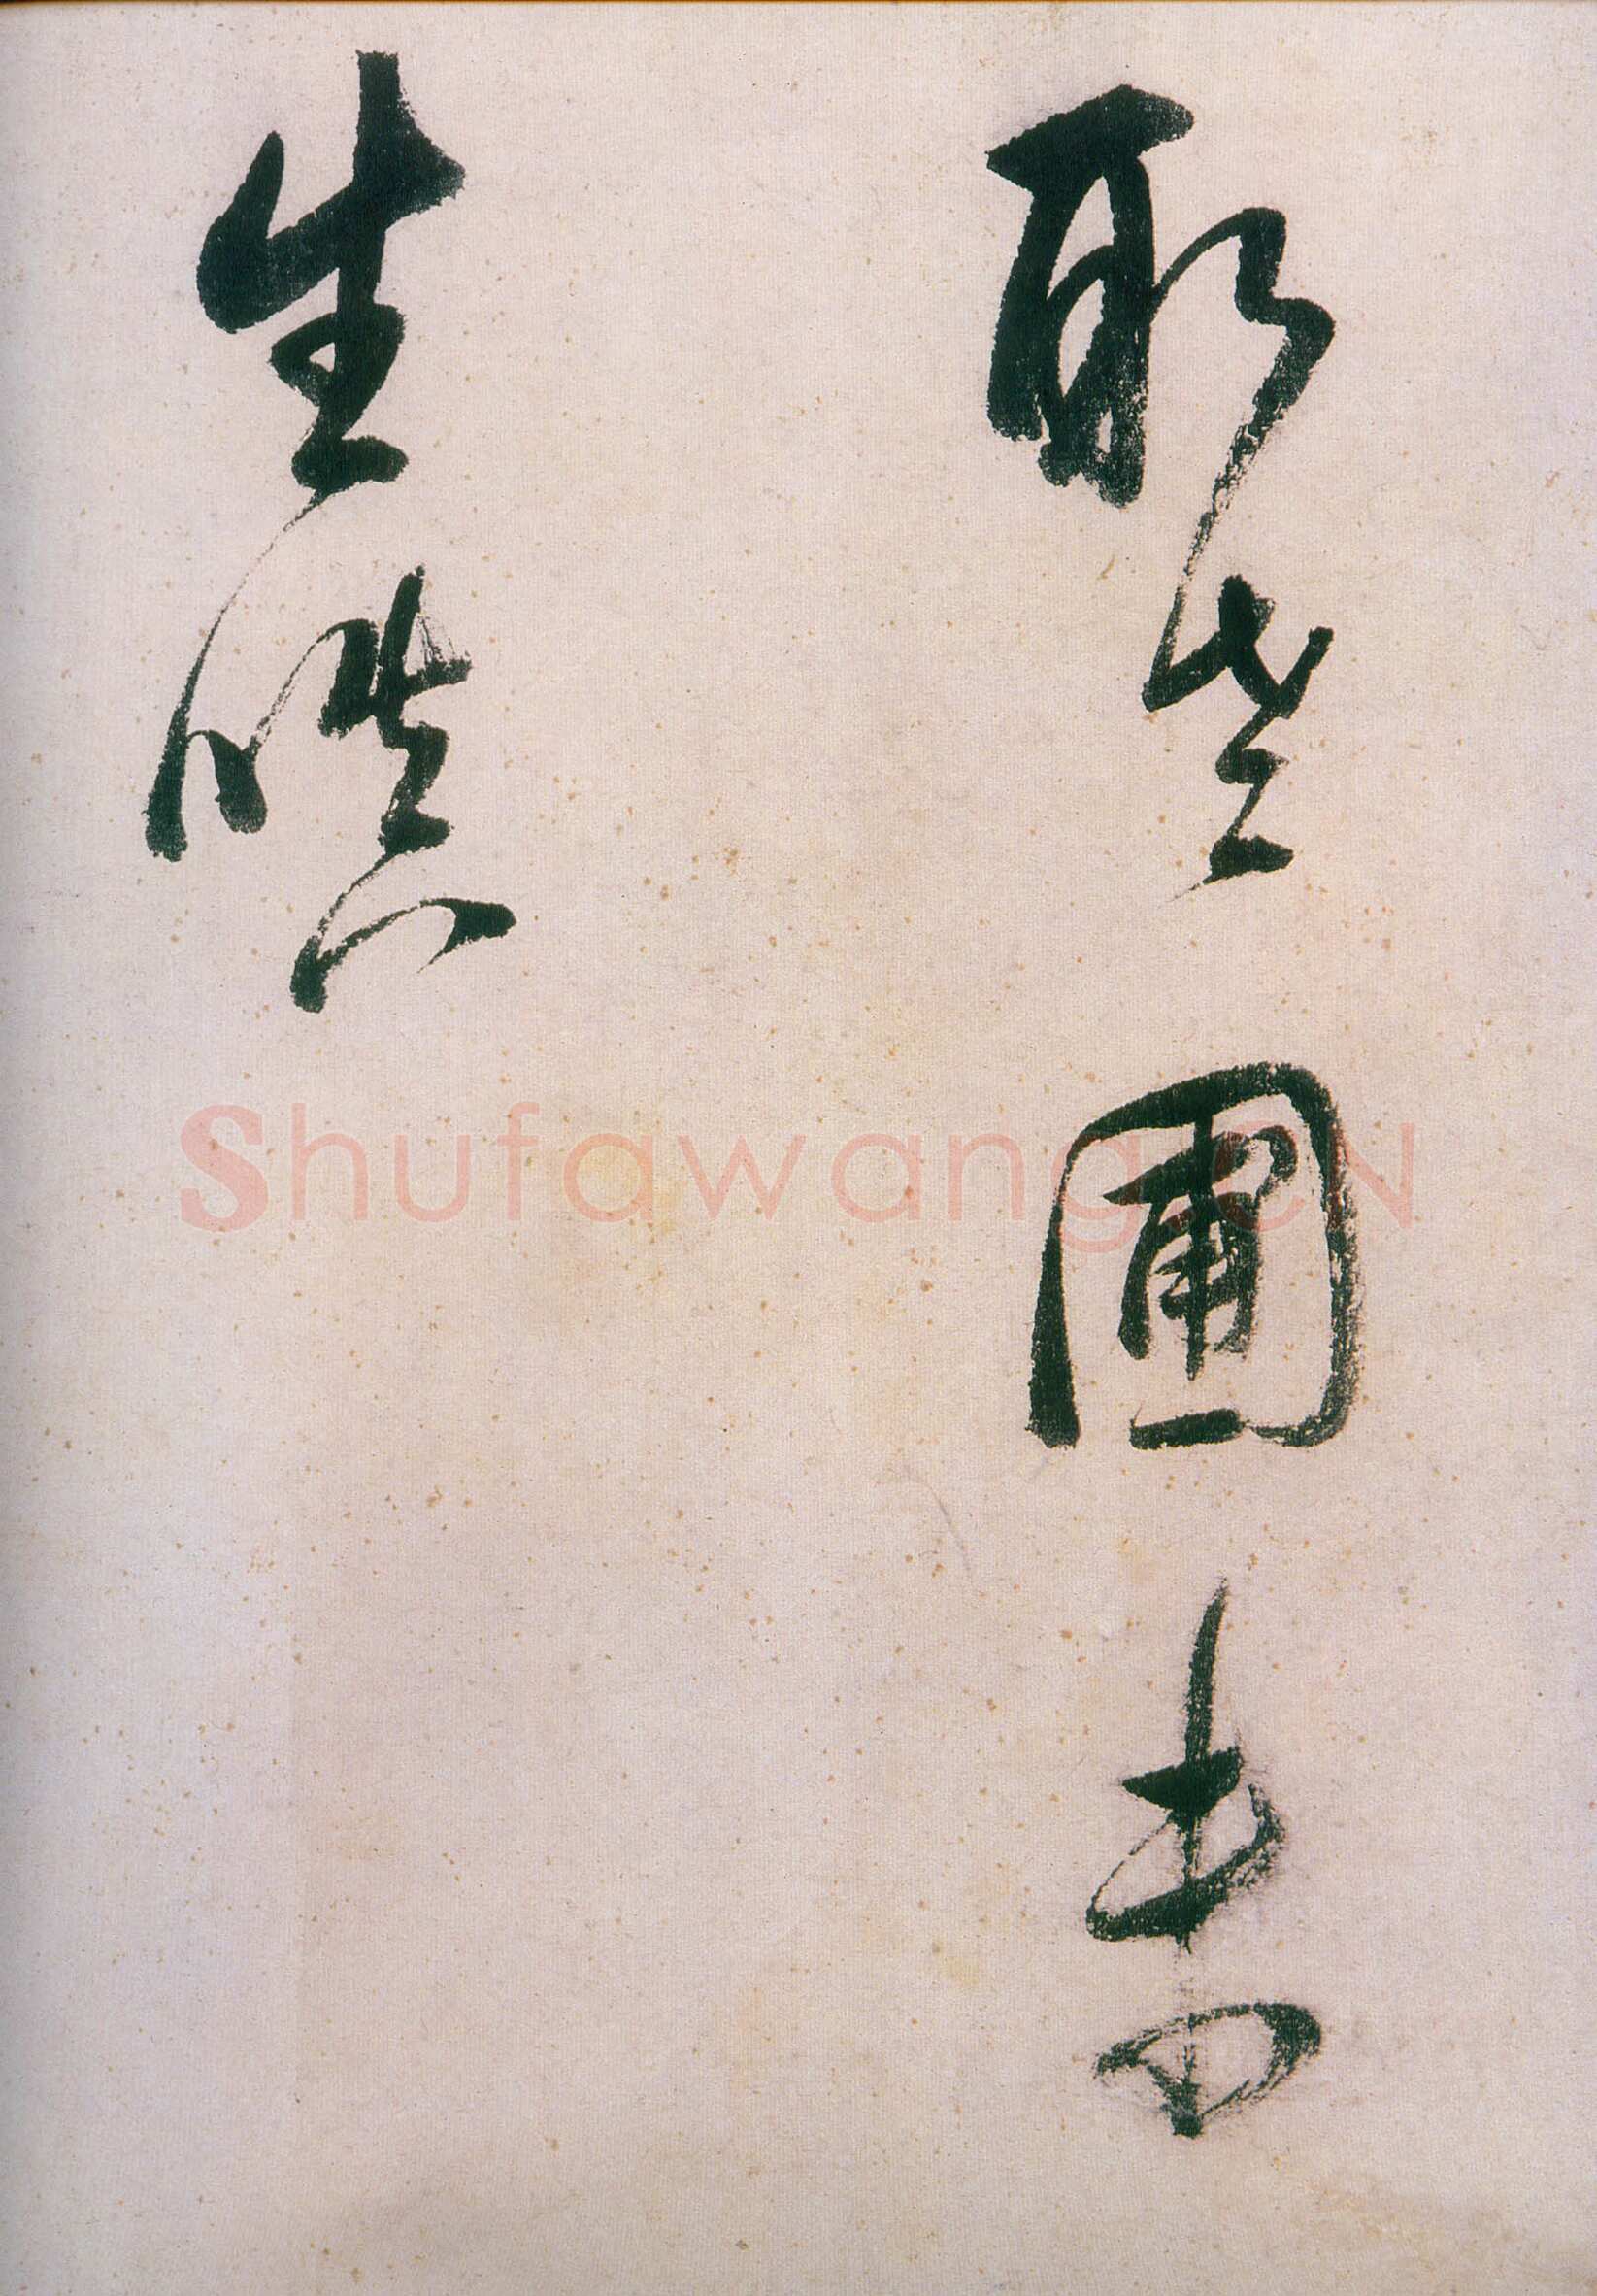 取老圃書
生嗔
Shufawang.CN